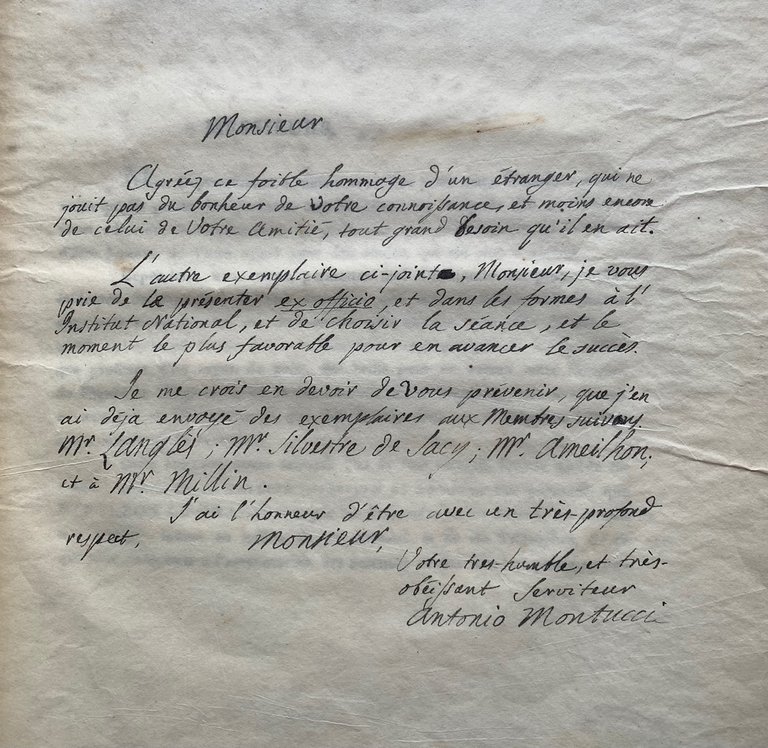 Monsieur
Agréez ce foible hommage d'un étranger, qui ne
jouit pas du bonheur de Votre connoissance, et moins encore
de celui de Votre Amitié, tout grand besoin qu'il en ait.
L'autre exemplaire ci-joint, Monsieur, je vous
prie de le présenter ex officio, et dans les formes à l'
Institut National, et de choisir la séance, et le
moment le plus favorable pour en avancer le succès.
Je me crois en devoir de Vous prévenir, que j'en
ai déja envoyé des exemplaires aux Membres suivans
Mr. Langlés; Mr. Silvestre de Sacy; Mr. Ameilhon;
et à Mr. Millin.
J'ai l'honneur d'être avec un très-profond
respect, Monsieur,
Votre tres-humble, et très-
obéissant Serviteur
Antonio Montucci